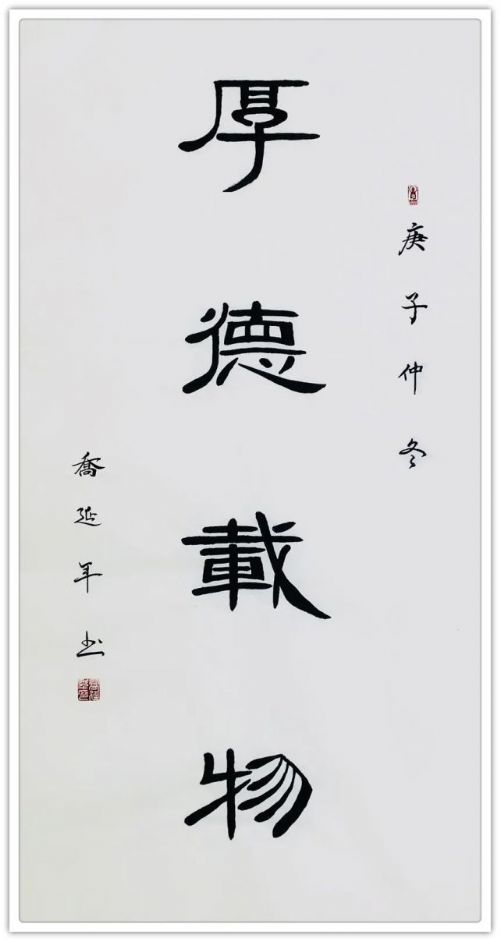 庚子仲冬
厚德載物
喬延年书